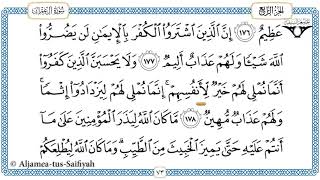 الجزء الرابع سورة آل عمران
عَظِيمٌ ١٧٦ إِنَّ الَّذِينَ اشْتَرَوُا الْكُفْرَ بِالْإِيمَٰنِ لَن يَضُرُّوا
اللَّهَ شَيْئًا وَلَهُمْ عَذَابٌ أَلِيمٌ ١٧٧ وَلَا يَحْسَبَنَّ الَّذِينَ كَفَرُوا
أَنَّمَا نُمْلِي لَهُمْ خَيْرٌ لِأَنفُسِهِمْ إِنَّمَا نُمْلِي لَهُمْ لِيَزْدَادُوا إِثْمًا
وَلَهُمْ عَذَابٌ مُهِينٌ ١٧٨ مَا كَانَ اللَّهُ لِيَذَرَ الْمُؤْمِنِينَ عَلَىٰ مَا
أَنتُمْ عَلَيْهِ حَتَّىٰ يَمِيزَ الْخَبِيثَ مِنَ الطَّيِّبِ وَمَا كَانَ اللَّهُ لِيُطْلِعَكُمْ
© Aljamea-tus-Saifiyah
٧٣